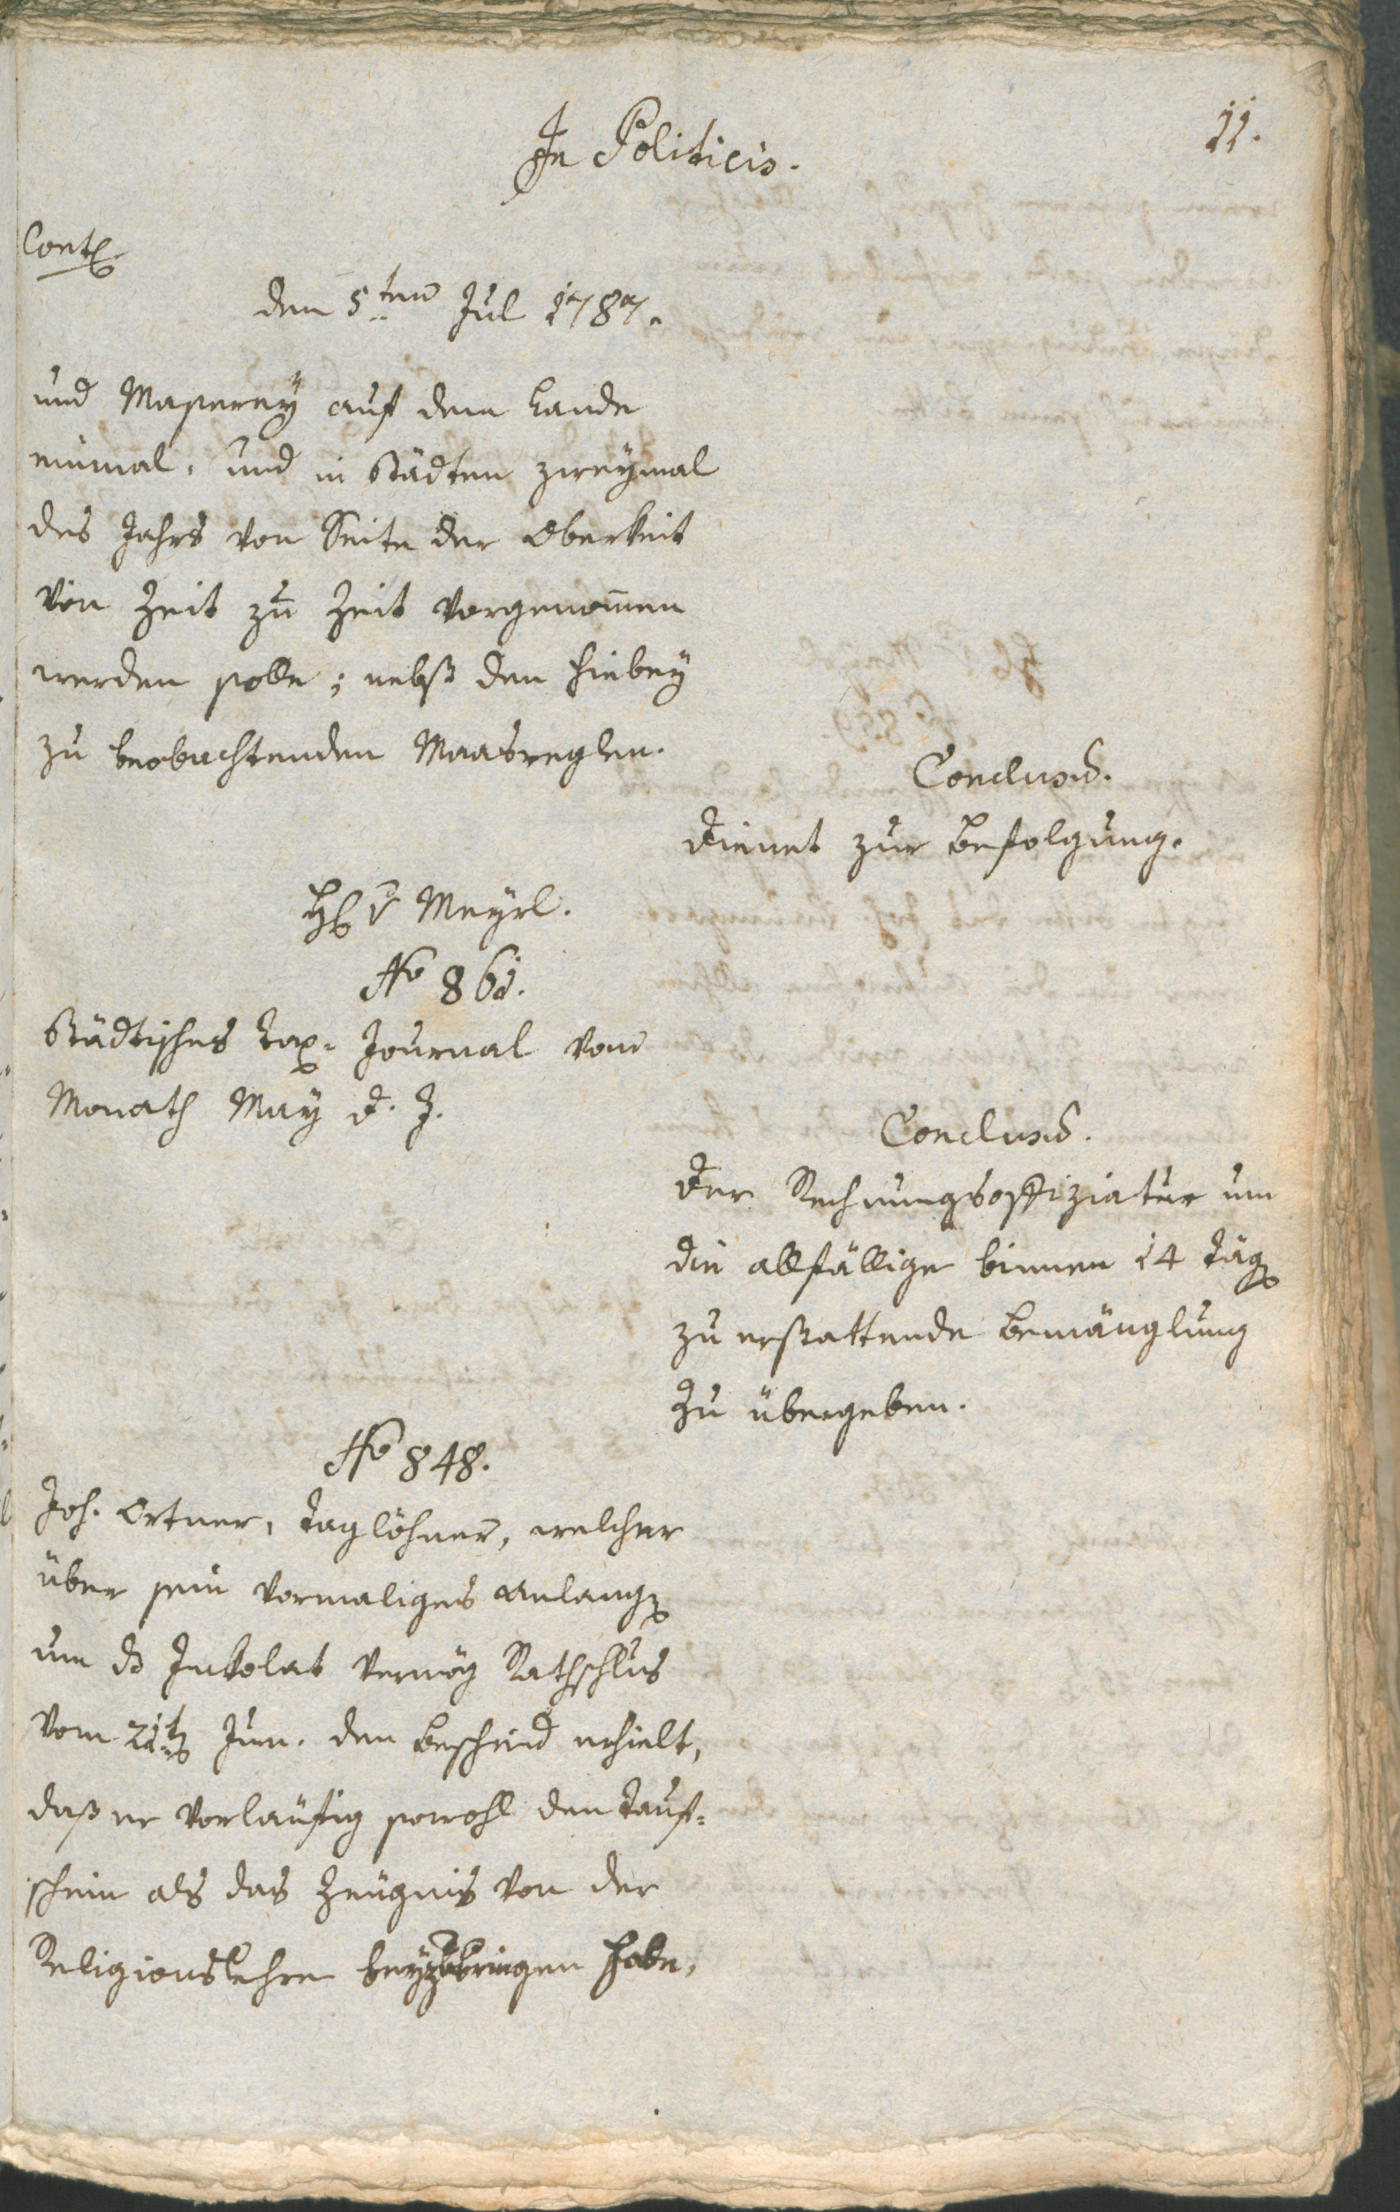 In Politicis.
11.
Cont
den 5.ten Jul 1787.
und Masserey auf dem Lande
einmal, und in Städten zweymal
des Jahrs von Seite der Oberkeit
von Zeit zu Zeit vorgenomen
werden solle; nebst den hiebey
zu beobachtenden Maasreglen.
Conclusū.
Dienet zur Befolgung.
H v Meyrl.
No 861.
Städtisches Tax-Journal vom
Monath May d. J.
Conclusū.
Der Rechnungsoffiziatur um
die allfällige binnen 14 Täg
zu erstattende Bemänglung
zu übergeben.
No 848.
Joh. Ortner, Taglöhner, welcher
über sein vormaliges Anlang
um ds Inkolat vermög Rathschlus
vom 21t Jun. den Bescheid erhielt,
daß er vorläufig sowohl den Tauf-
schein als das Zeugnis von der
Religionslehre beyzubringen habe,